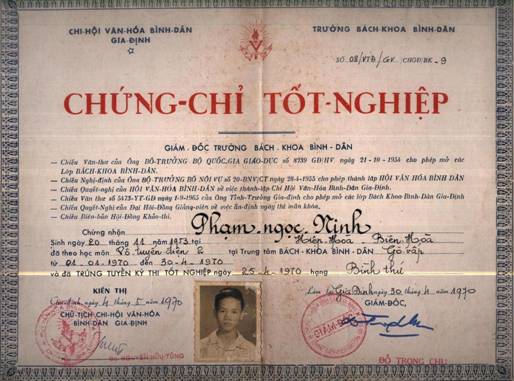 CHI-HỘI VĂN-HÓA BÌNH-DÂN
GIA-ĐỊNH
TRƯỜNG BÁCH-KHOA BÌNH-DÂN
SỐ 08/VTĐ/GK/CHGĐ/BK-9
CHỨNG-CHỈ TỐT-NGHIỆP
GIÁM-ĐỐC TRƯỜNG BÁCH-KHOA BÌNH-DÂN
— Chiếu Văn-thư của Ông BỘ-TRƯỞNG BỘ QUỐC-GIA GIÁO-DỤC số 8739 GD/HV ngày 21-10-1954 cho phép mở các
Lớp BÁCH-KHOA BÌNH-DÂN.
— Chiếu Nghị-định của Ông BỘ-TRƯỞNG BỘ NỘI VỤ số 20-BNV/CT ngày 28-4-1955 cho phép thành lập HỘI VĂN-HÓA BÌNH-DÂN
— Chiếu Quyết-nghị của HỘI VĂN-HÓA BÌNH-DÂN về việc thành-lập Chi Hội Văn-Hóa Bình-Dân Gia-Định.
— Chiếu Văn-thư số 5473-VT-GD ngày 1-9-1955 của Ông Tỉnh-Trưởng Gia-Định cho phép mở các lớp Bách Khoa Bình-Dân Gia-Định
— Chiếu Quyết-Nghị của Đại Hội-Đồng Giảng-viên về việc ấn-định ngày thi mãn khóa.
— Chiếu Biên-bản Hội-Đồng Khảo-thí.
Chứng nhận Phạm ngọc Ninh
Sinh ngày 20 tháng 11 năm 1953 tại Hiệp-Hòa - Biên Hòa
đã theo học môn Vô tuyến điện 2 tại Trung tâm BÁCH-KHOA BÌNH-DÂN Gò vấp
từ 01.04.1970 đến 30-4-1970
và đã TRÚNG TUYỂN KỲ THI TỐT NGHIỆP ngày 25-4-1970 hạng Bình thứ
KIẾN THỊ
Gia định ngày 4 tháng 5 năm 1970
CHỦ-TỊCH CHI-HỘI VĂN-HÓA
BÌNH-DÂN GIA-ĐỊNH
NGUYỄN-HỮU-TÙNG
Làm tại Gia Định ngày 30 tháng 4 năm 1970
GIÁM-ĐỐC,
GIÁM-ĐỐC
ĐỖ TRỌNG CHU